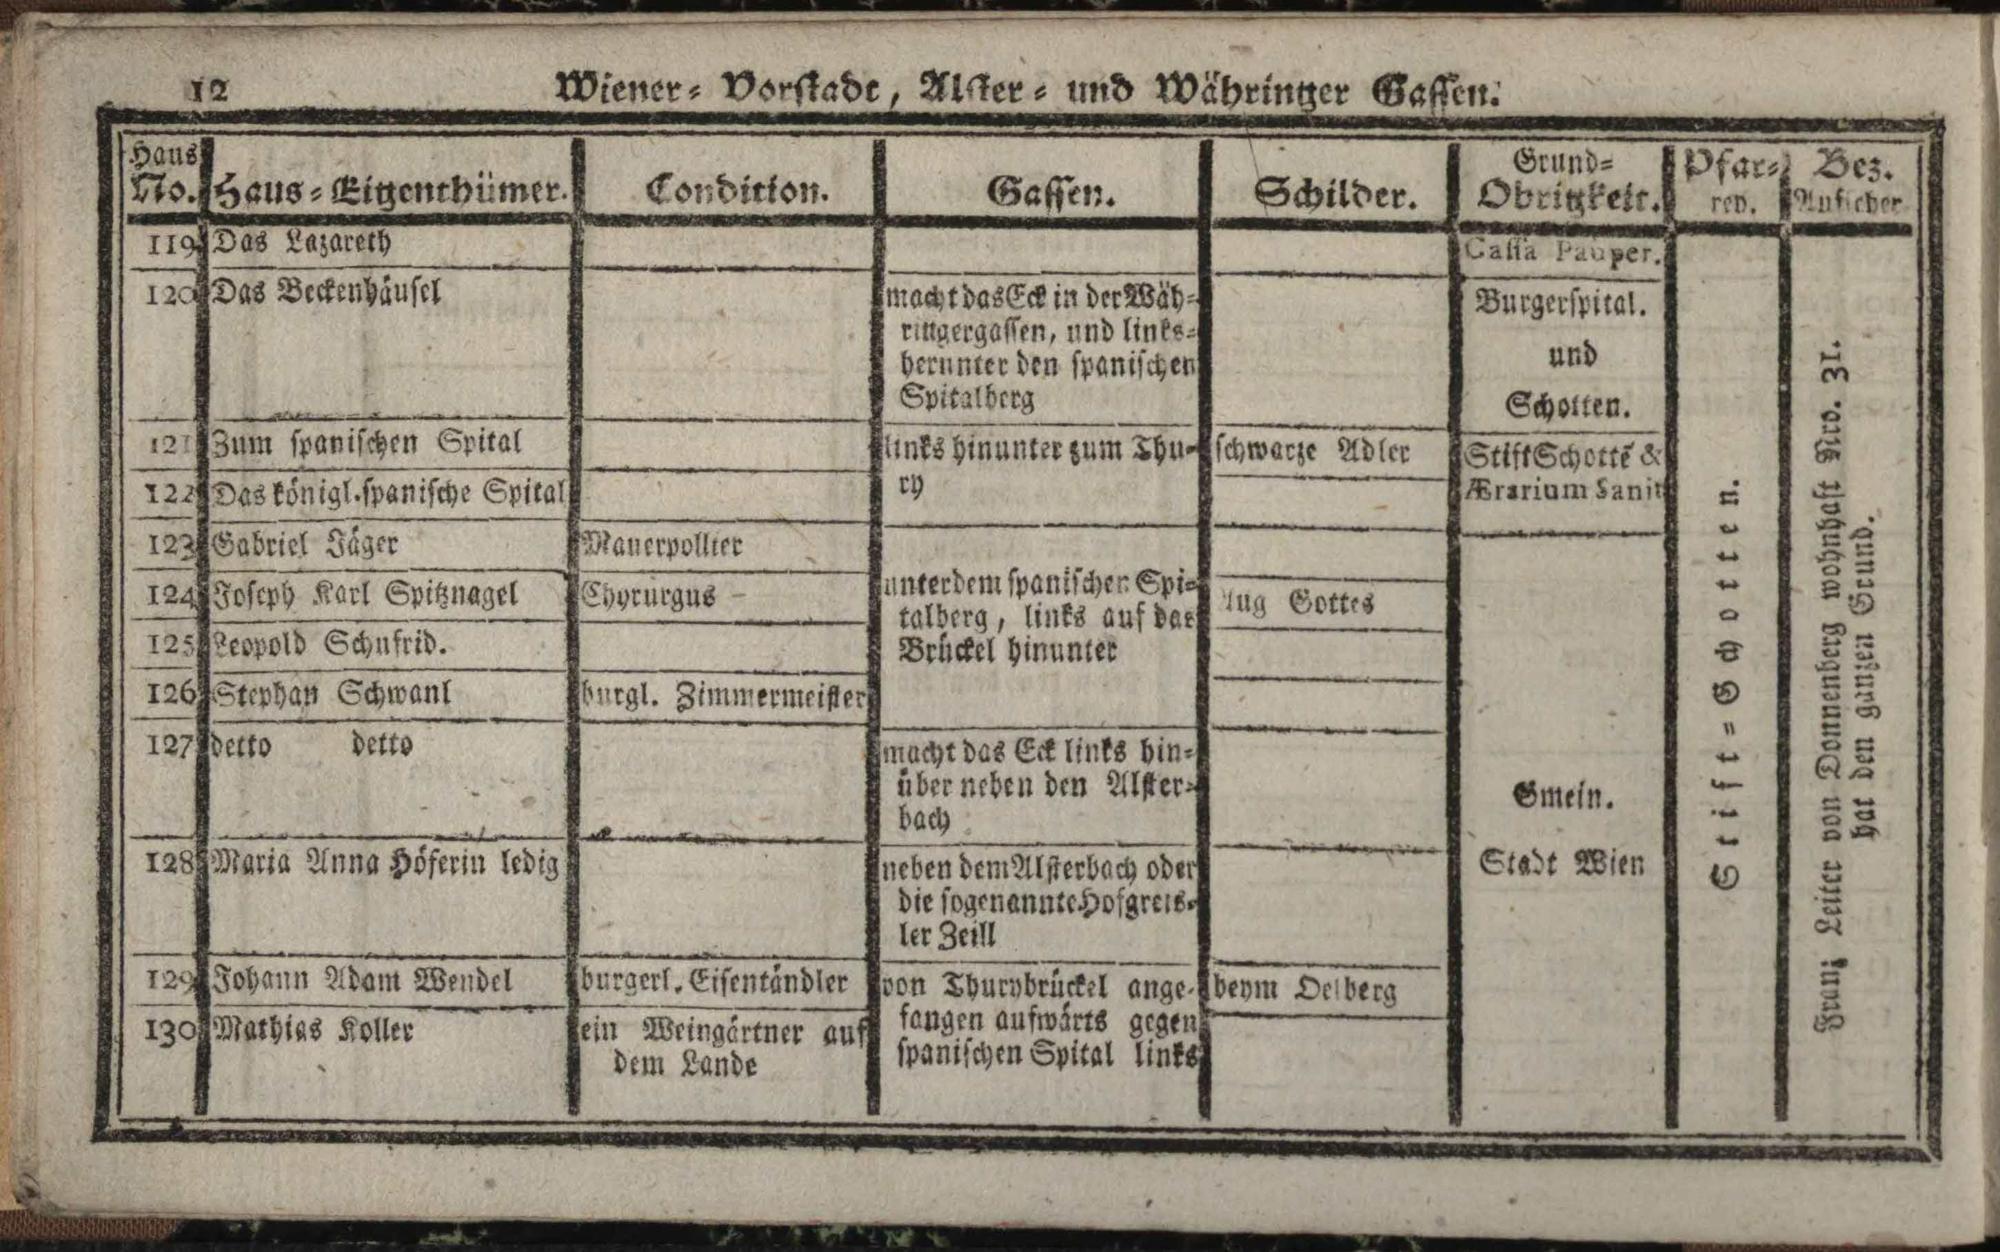 12
Wiener- Vorstadt, Alster- und Währinger Gassen.
Haus No.
Haus-Eigenthümer.
Condition.
Gassen.
Schilder.
Grund-Obrigkeit.
Pfar-ren.
Bez. Aufseher
119 Das Lazareth
Cassa Pauper.
120 Das Beckenhäusel
macht das Eck in der Wäh-
ringergassen, und links-
herunter den spanischen
Spitalberg
Burgerspital.
und
Schotten.
121 Zum spanischen Spital
links hinunter zum Thu-
ry
schwarze Adler
Stift Schottē &
Ærarium Sanit
122 Das königl. spanische Spital
123 Gabriel Jäger
Mauerpollier
124 Joseph Karl Spitznagel
Chyrurgus
unter dem spanischen Spi-
talberg, links auf das
Brückel hinunter
Aug Gottes
125 Leopold Schufrid.
126 Stephan Schwanl
burgl. Zimmermeister
127 detto detto
macht das Eck links hin-
über neben den Alster-
bach
128 Maria Anna Höferin ledig
neben dem Alsterbach oder
die sogenannte Hofgreis-
ler Zeill
129 Johann Adam Wendel
burgerl. Eisentändler
von Thurybrückel ange-
fangen aufwärts gegen
spanischen Spital links
beym Oelberg
130 Mathias Koller
ein Weingärtner auf
dem Lande
Gmein.
Stadt Wien
Stift-Schotten.
Franz Leiter von Donnenberg wohnhaft Nro. 31.
hat den ganzen Grund.